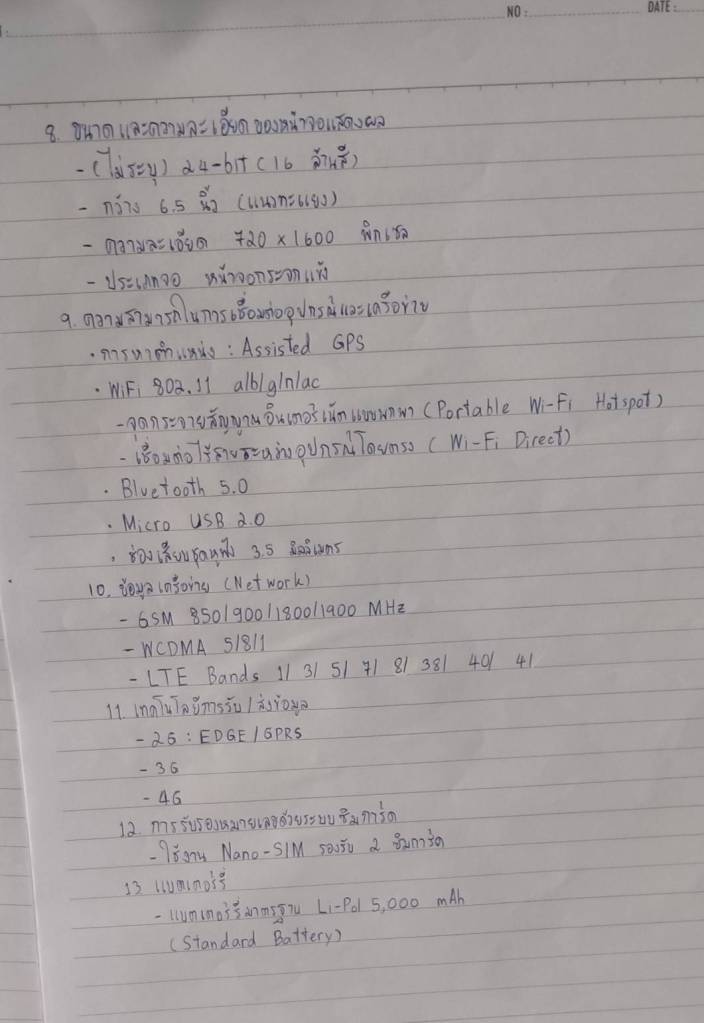 NO :
DATE :
8. ขนาดและความละเอียดของหน้าจอแสดงผล
- (ไม่ระบุ) 24-bit (16 ล้านสี)
- กว้าง 6.5 นิ้ว (แนวทะแยง)
- ความละเอียด 720 x 1600 พิกเซล
- ประเภทจอ หน้าจอกระจกแข็ง
9. ความสามารถในการเชื่อมต่ออุปกรณ์และเครือข่าย
• การหาตำแหน่ง : Assisted GPS
• WiFi 802.11 a/b/g/n/ac
- จุดกระจายสัญญานอินเตอร์เน็ตแบบพกพา (Portable Wi-Fi Hotspot)
- เชื่อมต่อไร้สายระหว่างอุปกรณ์โดยตรง ( Wi-Fi Direct)
• Bluetooth 5.0
• Micro USB 2.0
• ช่องเสียบชุดหูฟัง 3.5 มิลลิเมตร
10. ข้อมูลเครือข่าย (Network)
- GSM 850/900/1800/1900 MHz
- WCDMA 5/8/1
- LTE Bands 1/ 3/ 5/ 7/ 8/ 38/ 40/ 41
11. เทคโนโลยีการรับ / ส่งข้อมูล
- 2G : EDGE / GPRS
- 3G
- 4G
12. การรับรองหมายเลขด้วยระบบซิมการ์ด
- ใช้งาน Nano-SIM รองรับ 2 ซิมการ์ด
13 แบตเตอร์รี่
- แบตเตอร์รี่มาตรฐาน Li-Pol 5,000 mAh
(Standard Battery)